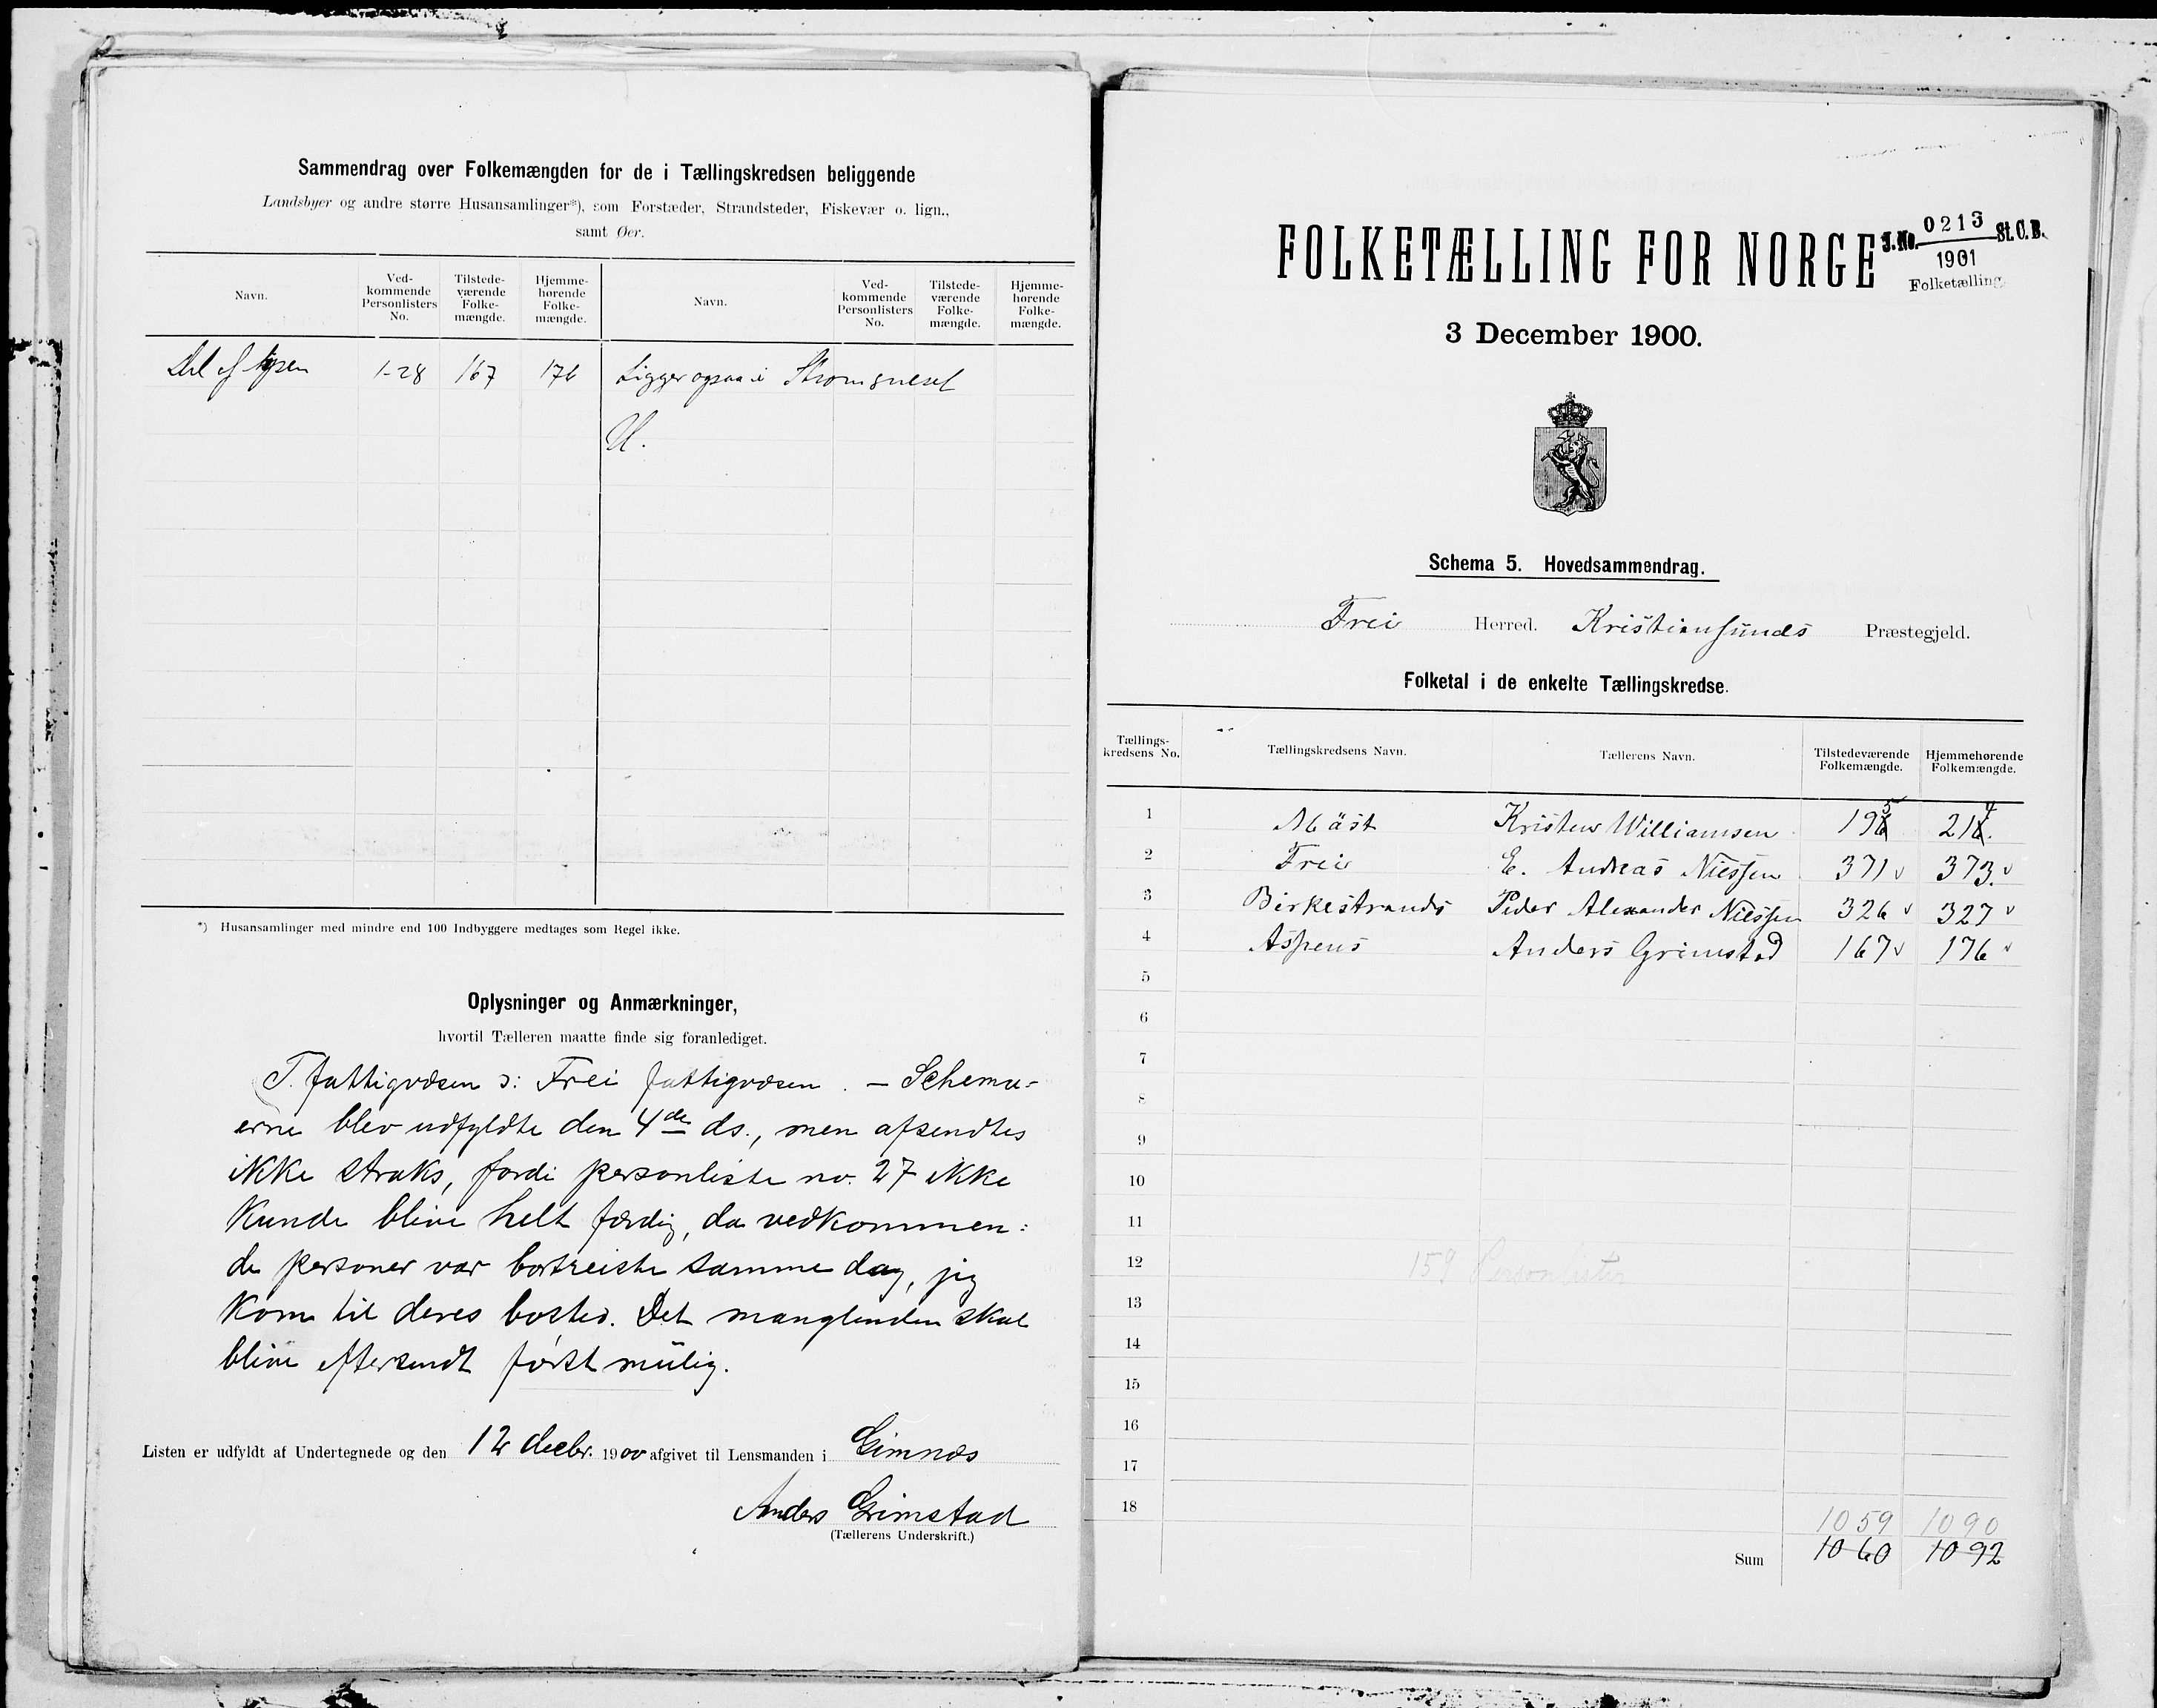 Sammendrag over Folkemængden for de i Tællingskredsen beliggende
Landsbyer og andre større Husansamlinger*), som Forstæder, Strandsteder, Fiskevær o. lign.,
samt Øer.
Navn. Ved-kommende Personlisters No. Tilstede-værende Folke-mængde. Hjemme-hørende Folke-mængde. Navn. Ved-kommende Personlisters No. Tilstede-værende Folke-mængde. Hjemme-hørende Folke-mængde.
Del af 1-28 167 176 Ligger ogsaa i
*) Husansamlinger med mindre end 100 Indbyggere medtages som Regel ikke.
Oplysninger og Anmærkninger,
hvortil Tælleren maatte finde sig foranlediget.
T. fattigvæsen ɔ: Frei fattigvæsen. — Schema-
erne blev udfyldte den 4de ds., men afsendtes
ikke straks, fordi personliste no. 27 ikke
kunde blive helt færdig, da vedkommen:
de personer var bortreiste samme dag, jeg
kom til deres bosted. Det manglenden skal
blive eftersendt først mulig.
Listen er udfyldt af Undertegnede og den 12 decbr. 1900 afgivet til Lensmanden i Gimnæs
Anders Grimstad
(Tællerens Underskrift.)
FOLKETÆLLING FOR NORGE
J. No. 0213 St. C. B.
1901
Folketælling
3 December 1900.
Schema 5. Hovedsammendrag.
Frei Herred. Kristiansunds Præstegjeld.
Folketal i de enkelte Tællingskredse.
Tællings-kredsens No. Tællingskredsens Navn. Tællerens Navn. Tilstedeværende Folkemængde. Hjemmehørende Folkemængde.
1 Kristen Williamsen 195 214
2 Frei E. Andreas Nilssen 371 v 373. v
3 Birkestrands Peder Alexander Nilssen 326 v 327 v
4 Aspens Anders Grimstad 167 v 176 v
5
6
7
8
9
10
11
12 159 Personlister
13
14
15
16
17
18
1059 1090
Sum 1060 1092